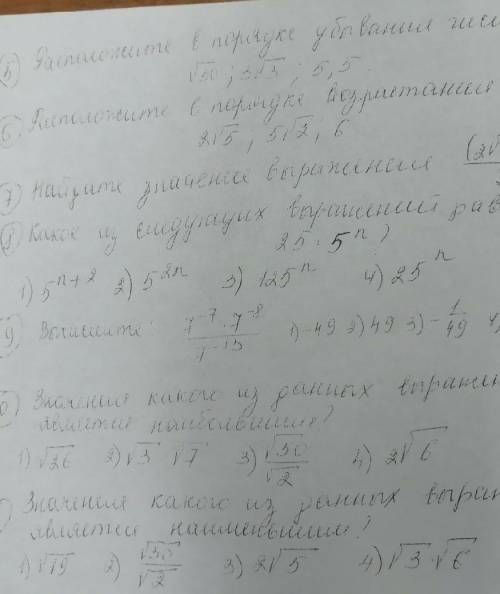 5) Расположите в порядке убывания числ
√30 ; 3√3 ; 5,5
6) Расположите в порядке возрастания
2√5 ; 5√2 ; 6
7) Найдите значение выражения (2√
8) Какое из следующих выражений рав
25 · 5ⁿ ?
1) 5ⁿ⁺² 2) 5²ⁿ 3) 125ⁿ 4) 25ⁿ
9) Вычислите: (7⁻⁷ · 7⁻⁸)/7⁻¹³ 1) -49 2) 49 3) -1/49 4)
0) Значение какого из данных выраже
является наибольшим?
1) √26 2) √3 √7 3) √30/√2 4) 2√6
) Значение какого из данных выра
является наименьшим?
1) √19 2) √30/√2 3) 2√5 4) √3 · √6